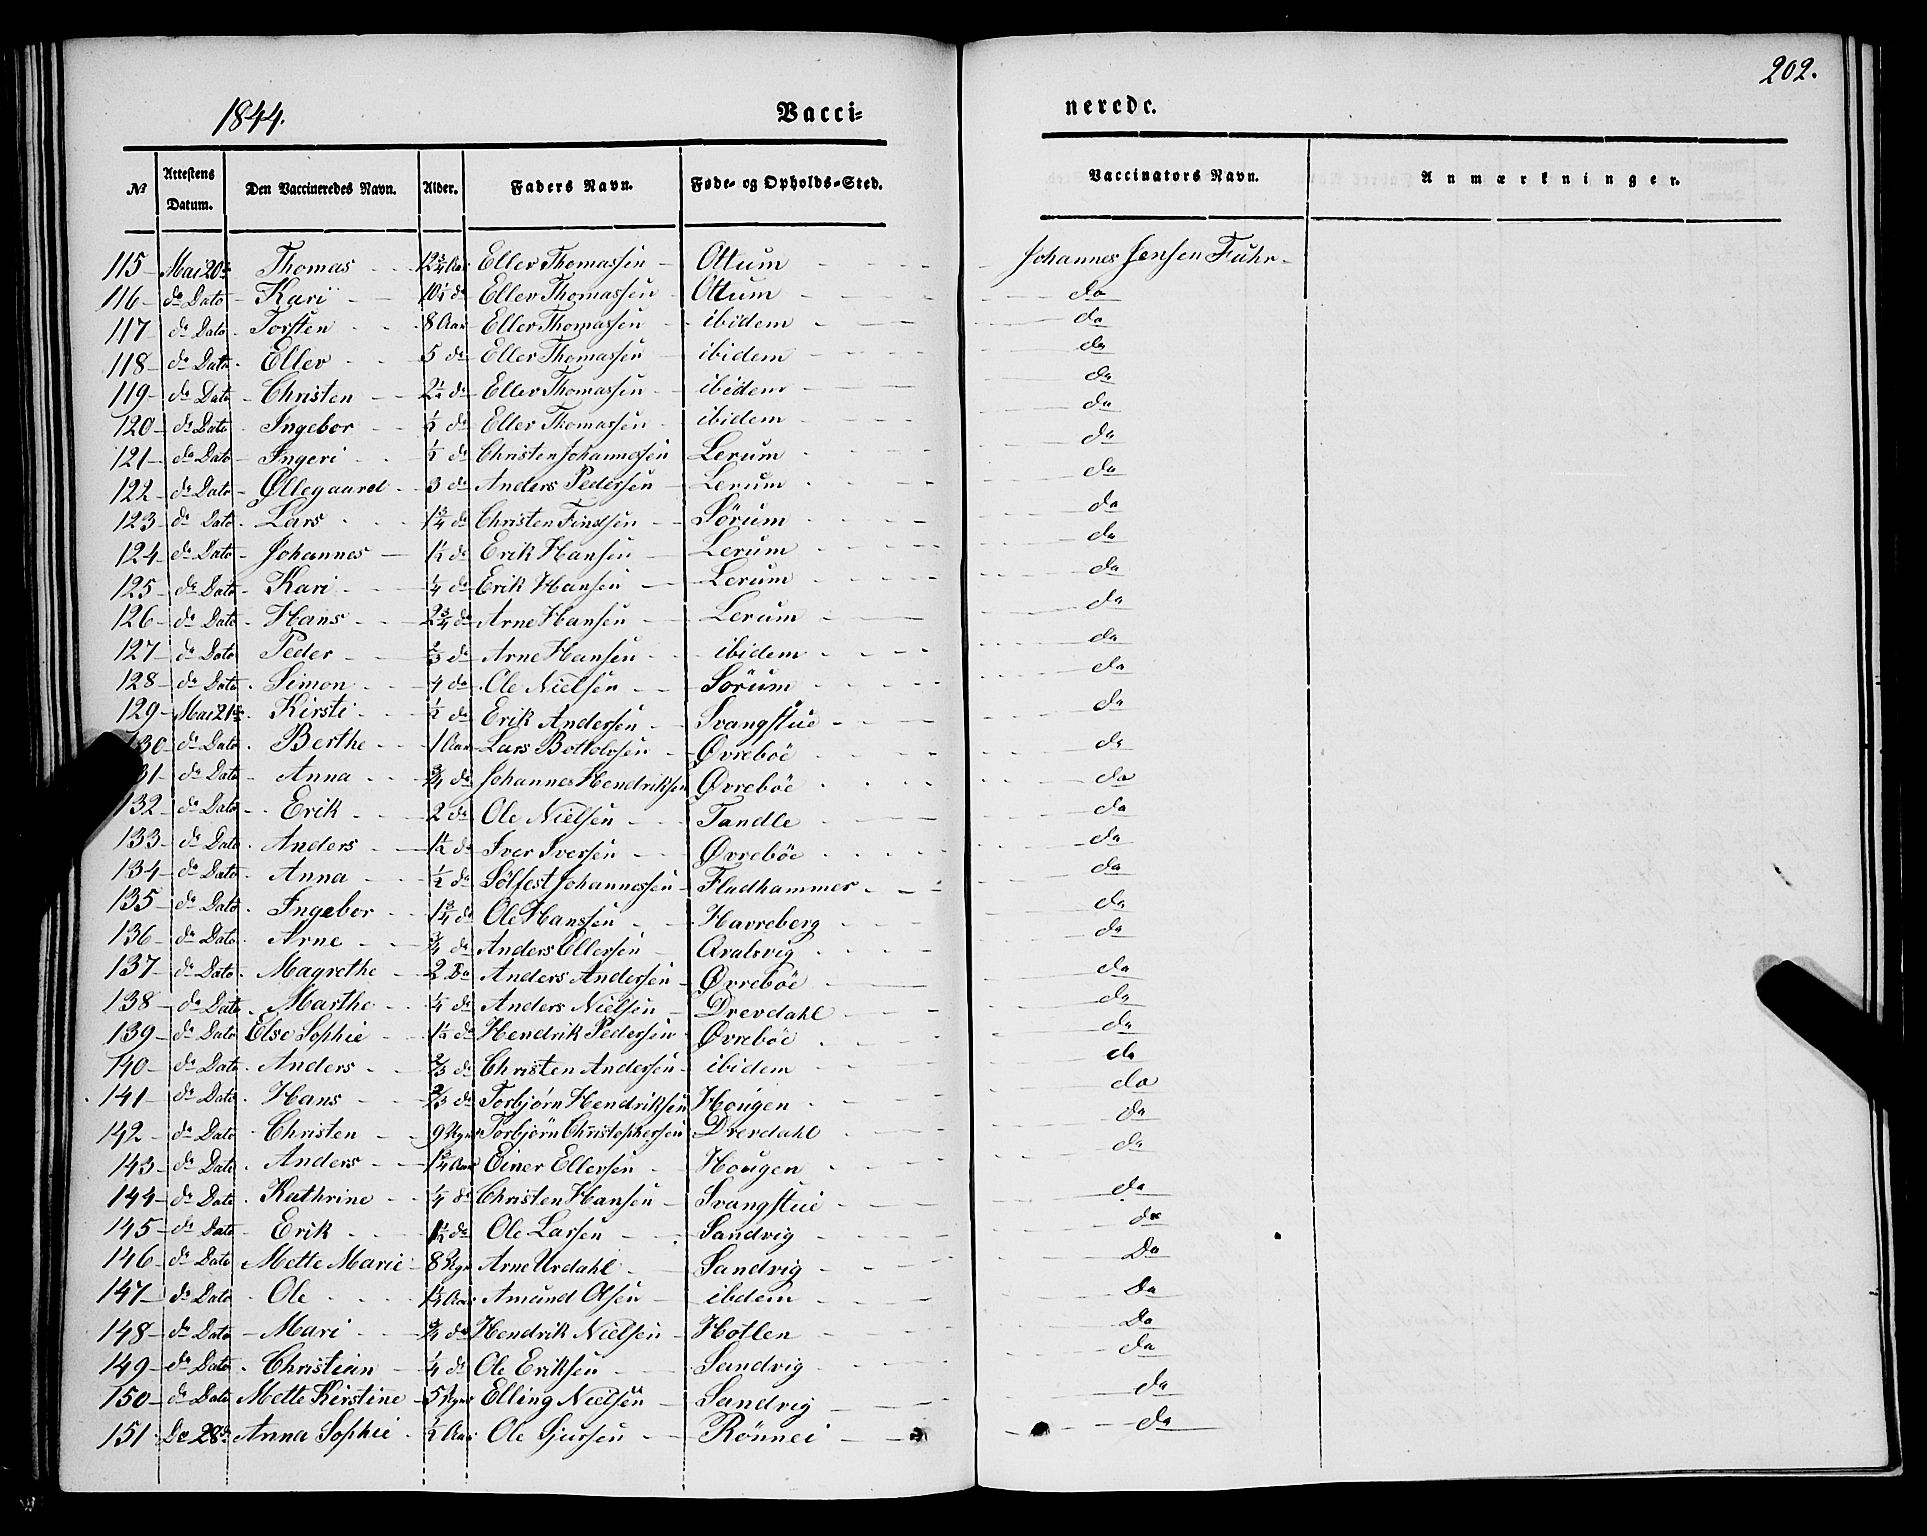 202.
1844. Vacci- nerede.
No Attestens Datum. Den Vaccineredes Navn. Alder. Faders Navn. Føde- og Opholds-Sted. Vaccinators Navn. Anmærkninger.
115 Mai 20de Thomas 12 3/4 Aar Eller Thomassen Ottum Johannes Jensen Fuhr
116 do Dato Kari 10 1/2 do Eller Thomassen Ottum do
117 do Dato Torsten 8 Aar Eller Thomassen ibidem do
118 do Dato Eller 5 do Eller Thomassen ibidem do
119 do Dato Christen 2 1/2 do Eller Thomassen ibidem do
120 do Dato Ingebor 1/2 do Eller Thomassen ibidem do
121 do Dato Ingeri 1/2 do Christen Johannessen Lerum do
122 do Dato Øllegaard 3 do Anders Pedersen Lerum do
123 do Dato Lars 1 3/4 do Christen Findsen Sörum do
124 do Dato Johannes 1 1/2 do Erik Hansen Lerum do
125 do Dato Kari 1/4 do Erik Hansen Lerum do
126 do Dato Hans 2 3/4 do Arne Hansen Lerum do
127 do Dato Peder 2/3 do Arne Hansen ibidem do
128 do Dato Simon 4 do Ole Nielsen Sörum do
129 Mai 21de Kirsti 1/2 do Erik Andersen Svangstue do
130 do Dato Berthe 1 Aar Lars Bottolvsen Øvreböe do
131 do Dato Anna 3/4 do Johannes Hendriksen Øvreböe do
132 do Dato Erik 2 do Ole Nielsen Tandle do
133 do Dato Anders 1 1/2 do Iver Iversen Øvrebóe do
134 do Dato Anna 1/2 do Sölfest Johannessen Fladhammer do
135 do Dato Ingebor 1 3/4 do Ole Hanssen Havreberg do
136 do Dato Arne 3/4 do Anders Ellersen Qvalsvig do
137 do Dato Magrethe 2 Do Anders Andersen Øvreböe do
138 do Dato Marthe 1/4 do Anders Nielsen Drevdahl do
139 do Dato Else Sophie 1 1/2 do Hendrik Pedersen Øvreböe do
140 do Dato Anders 2/3 do Christen Andersen ibidem do
141 do Dato Hans 2/3 do Torbjörn Hendriksen Hougen do
142 do Dato Christen 9 Ugr Torbjörn Christophersen Drevdahl do
143 do Dato Anders 1 3/4 Aar Einer Ellersen Hougen do
144 do Dato Kathrine 1/4 do Christen Hansen Svangstue do
145 do Dato Erik 1 1/2 do Ole Larsen Sandvig do
146 do Dato Mette Marie 8 Ugr Arne Urdahl Sandvig Do
147 do Dato Ole 1 1/4 Aar Amund Olsen ibdem Do
148 do Dato Mari 3/4 do Hendrik Nielsen Hotlen Do
149 do Dato Christian 1/4 do Ole Eriksen Sandvig do
150 do Dato Mette Kirstine 5 Ugr Elling Nielsen Sandvig do
151 Do 28de Anna Sophie 1/2 Aar Ole Sjursen Rönnei do